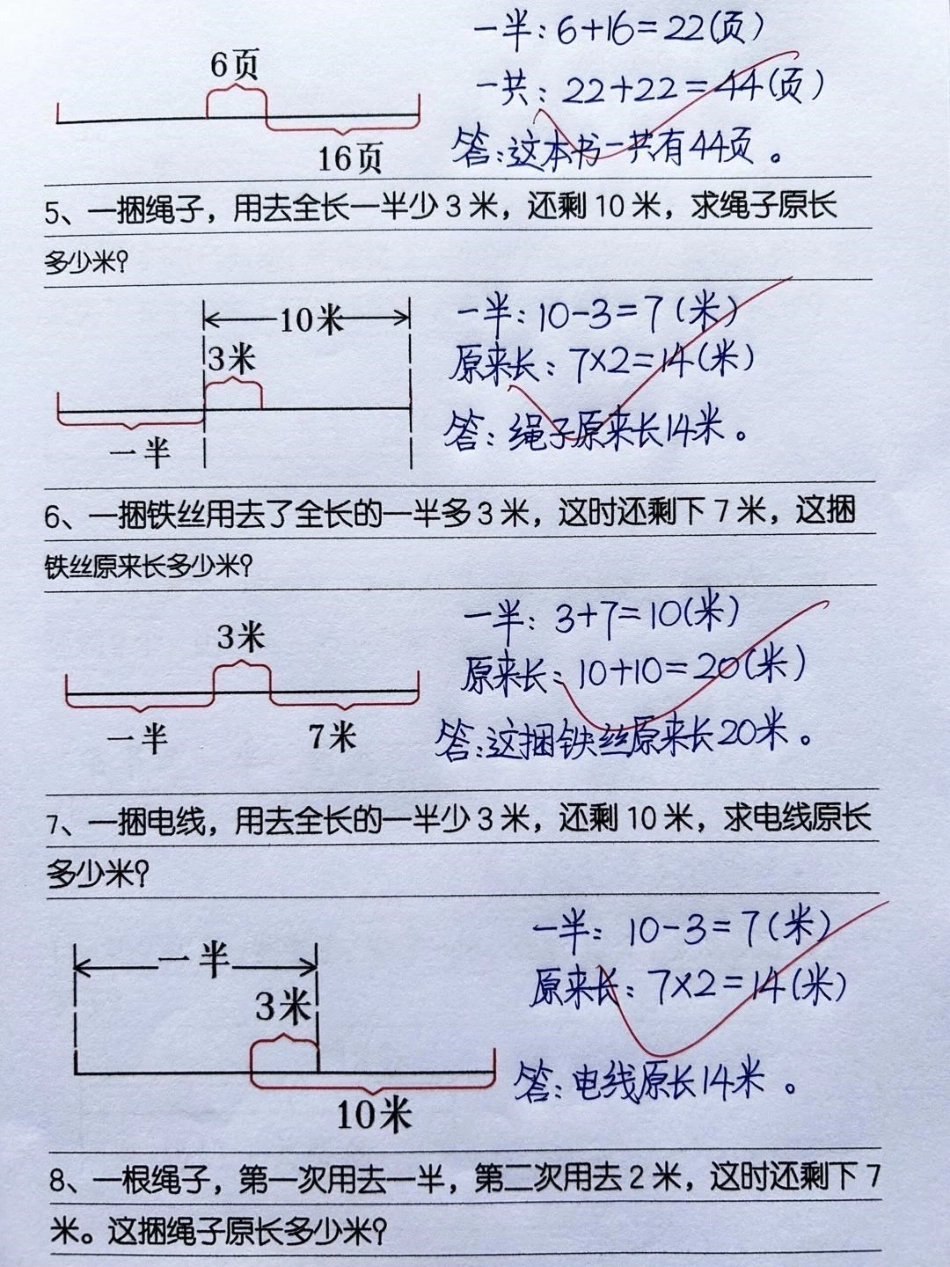 一半：6+16=22(页)
6页
一共：22+22=44(页)
16页
答：这本书一共有44页。
5、一捆绳子，用去全长一半少3米，还剩10米，求绳子原长
多少米？
10米
一半：10-3=7(米)
3米
原来长：7×2=14(米)
一半
答：绳子原来长14米。
6、一捆铁丝用去了全长的一半多3米，这时还剩下7米，这捆
铁丝原来长多少米？
3米
一半：3+7=10(米)
原来长：10+10=20(米)
一半
7米
答：这捆铁丝原来长20米。
7、一捆电线，用去全长的一半少3米，还剩10米，求电线原长
多少米？
一半
一半：10-3=7(米)
3米
原来长：7×2=14(米)
10米
答：电线原长14米。
8、一根绳子，第一次用去一半，第二次用去2米，这时还剩下7
米。这捆绳子原长多少米？